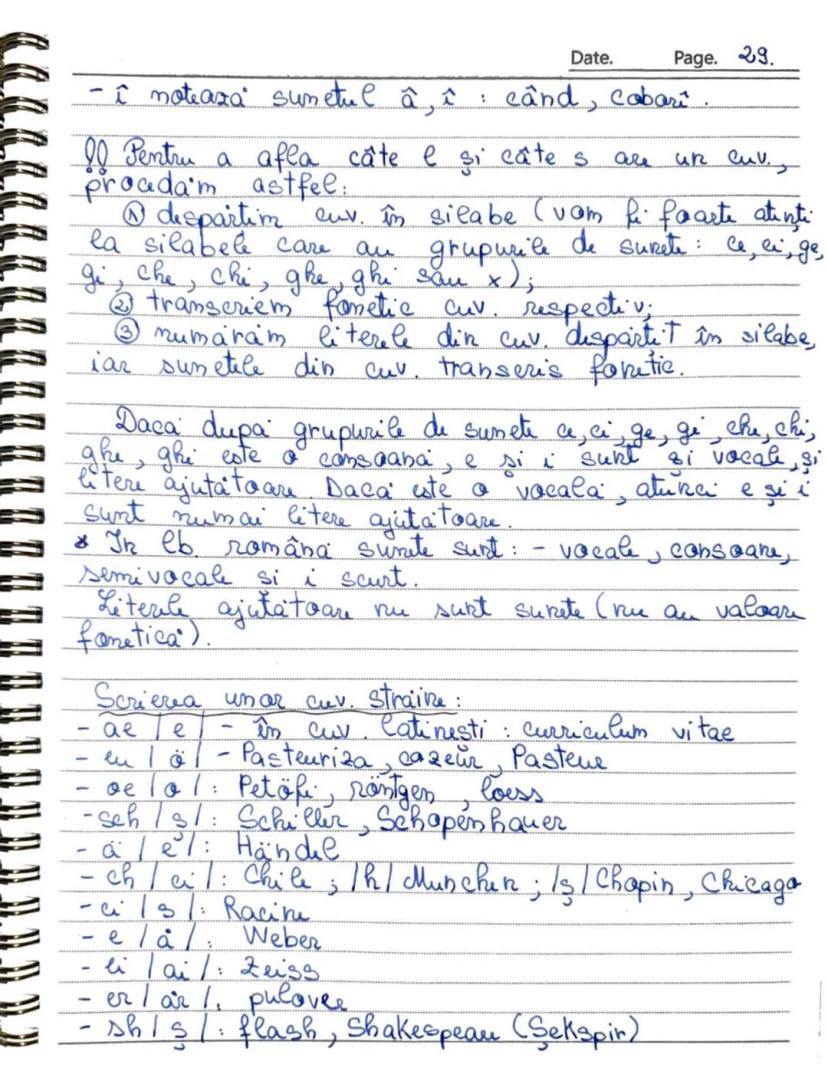 Date. Page. 29.
- î notează sunetul â, î : când, coborî.
!! Pentru a afla câte l și câte s are un cuv.,
procedăm astfel:
① despărțim cuv. în silabe (vom fi foarte atenți
la silabele care au grupurile de sunete: ce, ci, ge,
gi, che, chi, ghe, ghi sau x);
② transcriem fonetic cuv. respectiv;
③ numărăm literele din cuv. despărțit în silabe,
iar sunetele din cuv. transcris fonetic.
Dacă după grupurile de sunete ce, ci, ge, gi, che, chi,
ghe, ghi este o consoană, e și i sunt și vocale, și
litere ajutătoare. Dacă este o vocală, atunci e și i
sunt numai litere ajutătoare.
* În lb. română sunete sunt: - vocale, consoane,
semivocale si i scurt.
Literele ajutătoare nu sunt sunete (nu au valoare
fonetică).
Scrierea unor cuv. străine:
- ae /e/ - în cuv. latinești : curriculum vitae
- eu /ö/ - Pasteuriza, cozeur, Pasteur
- oe /o/: Petöfi, röntgen, loess
- sch /ș/: Schiller, Schopenhauer
- ä /e/: Händel
- ch / ci /: Chile ; /h/ Munchen ; /ș/ Chopin, Chicago
- ci /s/: Racine
- e /ă/: Weber
- ei /ai/: Zeiss
- er /ăr/: pulover
- sh /ș/: flash, Shakespeare (Șekspir)